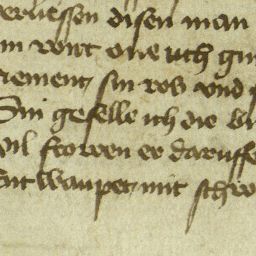 verliessen disen man
im wirt one uch gu
rement, sin ros vnd s
Sin geselle ich die bu
vil frowen er daruffe
Ent waupet, mit schw